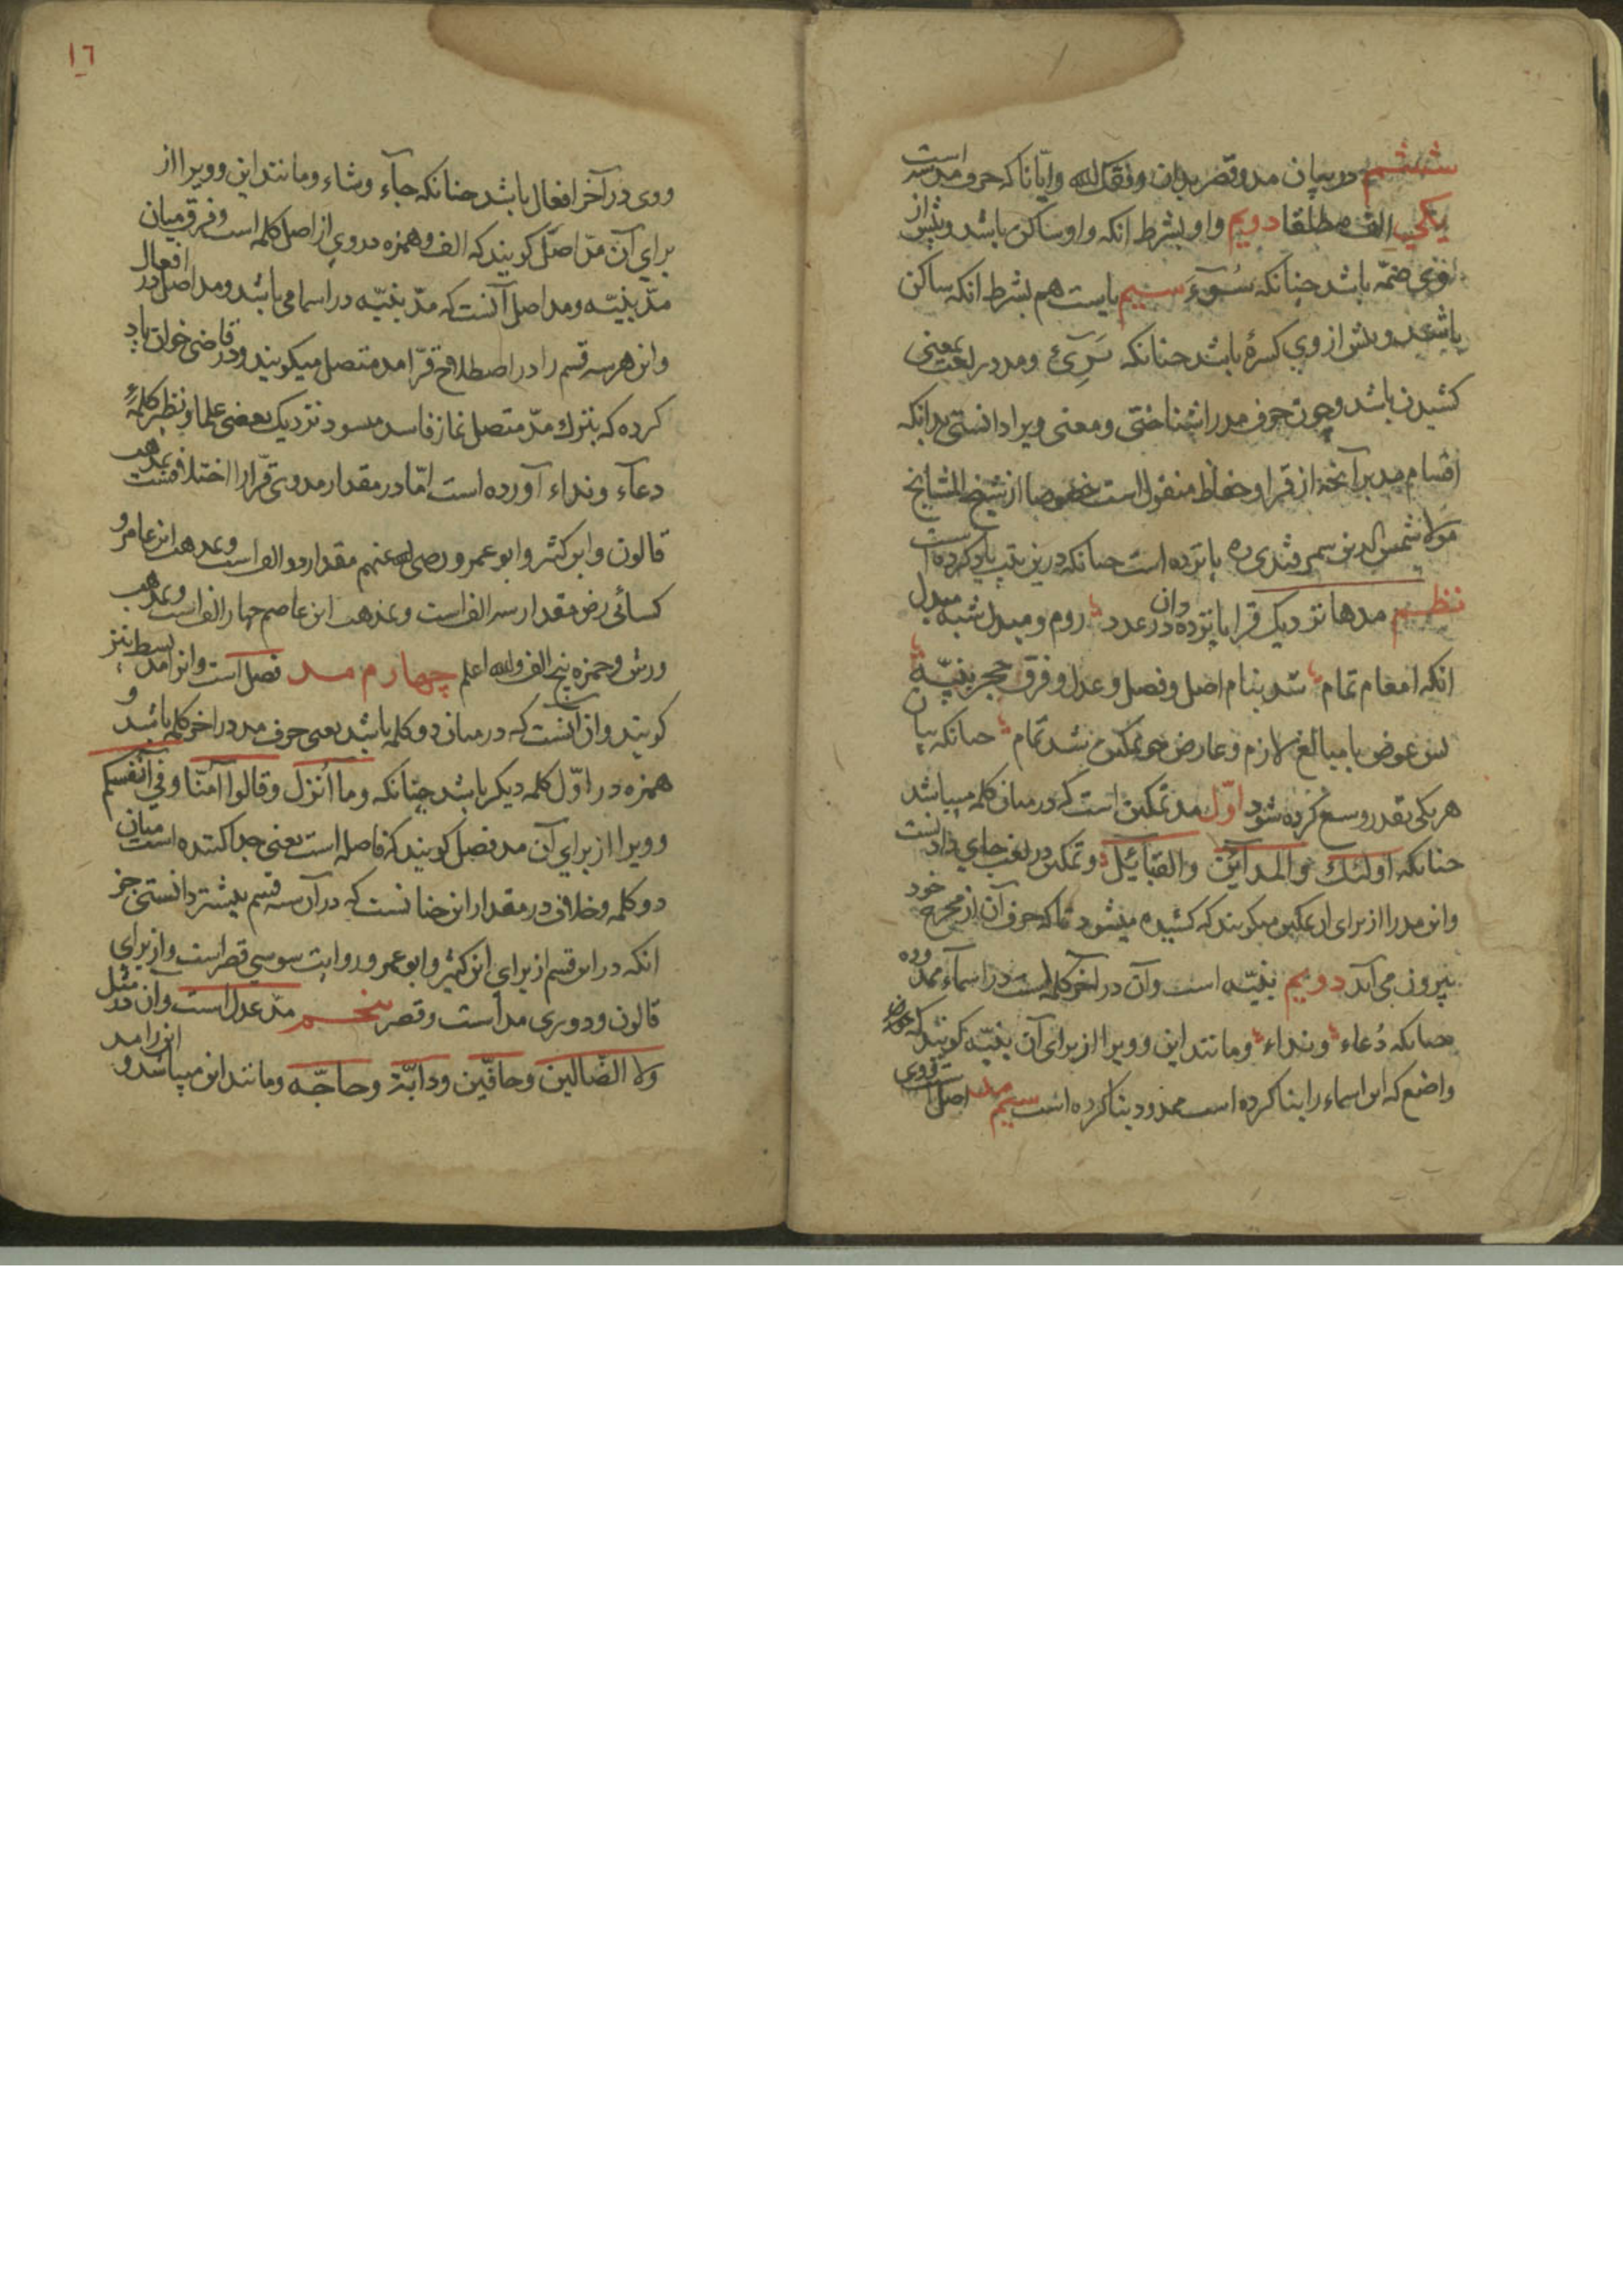 ششم در بیان مد و قصر بدان وفقک الله وایانا که حروف مد سه است
یکی الف مطلقا دویم واو بشرط انکه واو ساکن باشد و پیش از
وی ضمّه باشد چنانکه سُوٓءَ سیم یاست هم بشرط انکه ساکن
باشد و پیش از وی کسرهٔ باشد چنانکه ومد در لغت بمعنی
کشیدن باشد و چون حروف مد را شناختی و معنی ویرا دانستی بدانکه
اقسام مد بر آنچه از قرا و حفاظ منقول است خصوصا از شیخ المشایخ
مولانا شمس الدین سمرقندی ره پانزده است چنانکه درین یاد کرده است
نظم مدها نزدیک قرا پانزده دان در عدد روم و مبدل شبه مبدل
انکه تمام شد بنام اصل و فصل و عدل و فرق حجز بنیّه
پس عوض با مبالغ لازم و عارض تمکین شد تمام چنانکه بیان
هر یکی بقدر وسع کرده شود اوّل مد تمکین است که در میان کلمه میباشد
چنانکه اولئک والمدآئن والقبآئل و تمکین در لغت جای دادنست
واین مد را از برای ان تمکین میکویند که کشیده میشود تا که حرف آن از مخرج خود
بیرون می آید دویم بنیّه است وآن در آخر کلمه است در اسماء ممدوده
چنانکه دُعاء ونداء ومانند این و ویرا از برای آن بنیّه کویند که
واضع که این اسماء را بنا کرده است ممدود بنا کرده است سیم مد اصل است
ووی در آخر افعال باشد چنانکه جآء وشاء ومانند این و ویرا از
برای آن مدّ اصل کویند که الف وهمزه در وی از اصل کلمه است وفرق میان
مدّ بنیّه ومد اصل آنست که مدّ بنیّه در اسامی باشد ومد اصل در افعال
واین هر سه قسم را در اصطلاح قرّا مد متصل میکویند ودر قاضی خوان یاد
کرده که بترک مدّ متصل نماز فاسد میسود نزدیک بعضی علما ونظیر کلمهٔ
دعآء ونداء آورده است امّا در مقدار مد وی قرّا را اختلافست بمذهب
قالون وابن کثیر وابو عمرو رضی الله عنهم مقدار دو الف است ومذهب ابن عامر و
کسائی رض مقدار سه الف است ومذهب ابن عاصم چهار الف است ومذهب
ورش وحمزه پنج الف والله اعلم چهارم مد فصل است واین را مد بسط نیز
کویند وان آنست که در میان دو کلمه باشد یعنی حرف مد در اخر کلمه باشد و
همزه در اوّل کلمه دیکر باشد چنانکه وما اُنزل وقالوا آمنّا وفی انفسکم
و ویرا از برای آن مد فصل کویند که فاصله است یعنی جدا کننده است میان
دو کلمه وخلاف در مقدار این چنانست که در آن سه قسم پیشتر دانستی جز
انکه در این قسم از برای ابن کثیر وابو عمرو روایت سوسی قصر است واز برای
قالون ودوری مد است وقصر پنجم مدّ عدل است وآن در مثل
ولا الضّالین وحافّین ودابّة وحاجّه ومانند این میباشد و این را مد
١٦